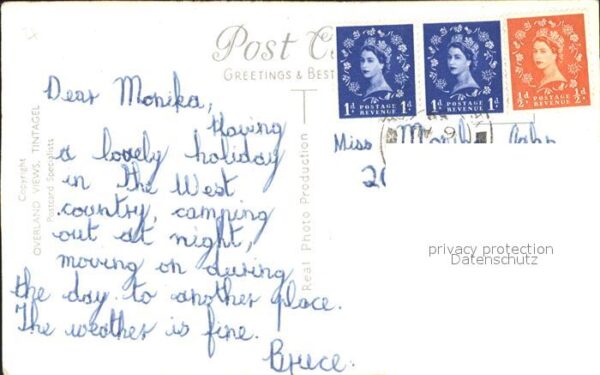 Post C
GREETINGS & BEST
1d. POSTAGE REVENUE 1d.
1d. POSTAGE REVENUE 1d.
½d. POSTAGE REVENUE ½d.
Copyright
OVERLAND VIEWS, TINTAGEL
Postcard Specialists
Real Photo Production
Dear Monika,
Having
a lovely holiday
in the West
country, camping
out at night,
moving on during
the day to another place.
The weather is fine.
Bruce.
Miss
privacy protection
Datenschutz